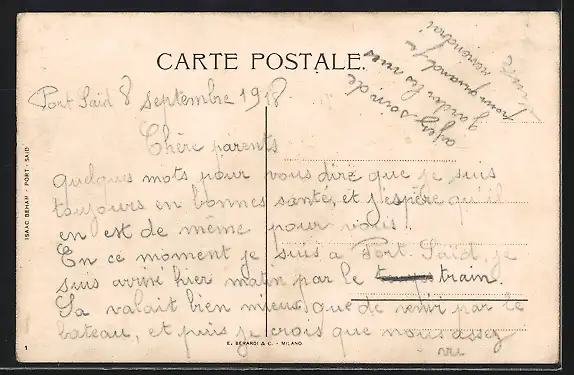 CARTE POSTALE.
ayez soin de
garder les vues
pour quand je
reviendrai
Port Saïd 8 septembre 1918
Chère parents
quelques mots pour vous dire que je suis
toujours en bonnes santé, et j'espère qu'il
en est de même pour vous!
En ce moment je suis à Port. Saïd, je
suis arrivé hier matin par le train.
Sa valait bien mieux que de venir par le
bateau, et puis je crois que nous assez
vu
ISAAC BEHAR - PORT - SAID
1
E. BERARDI & C. - MILANO